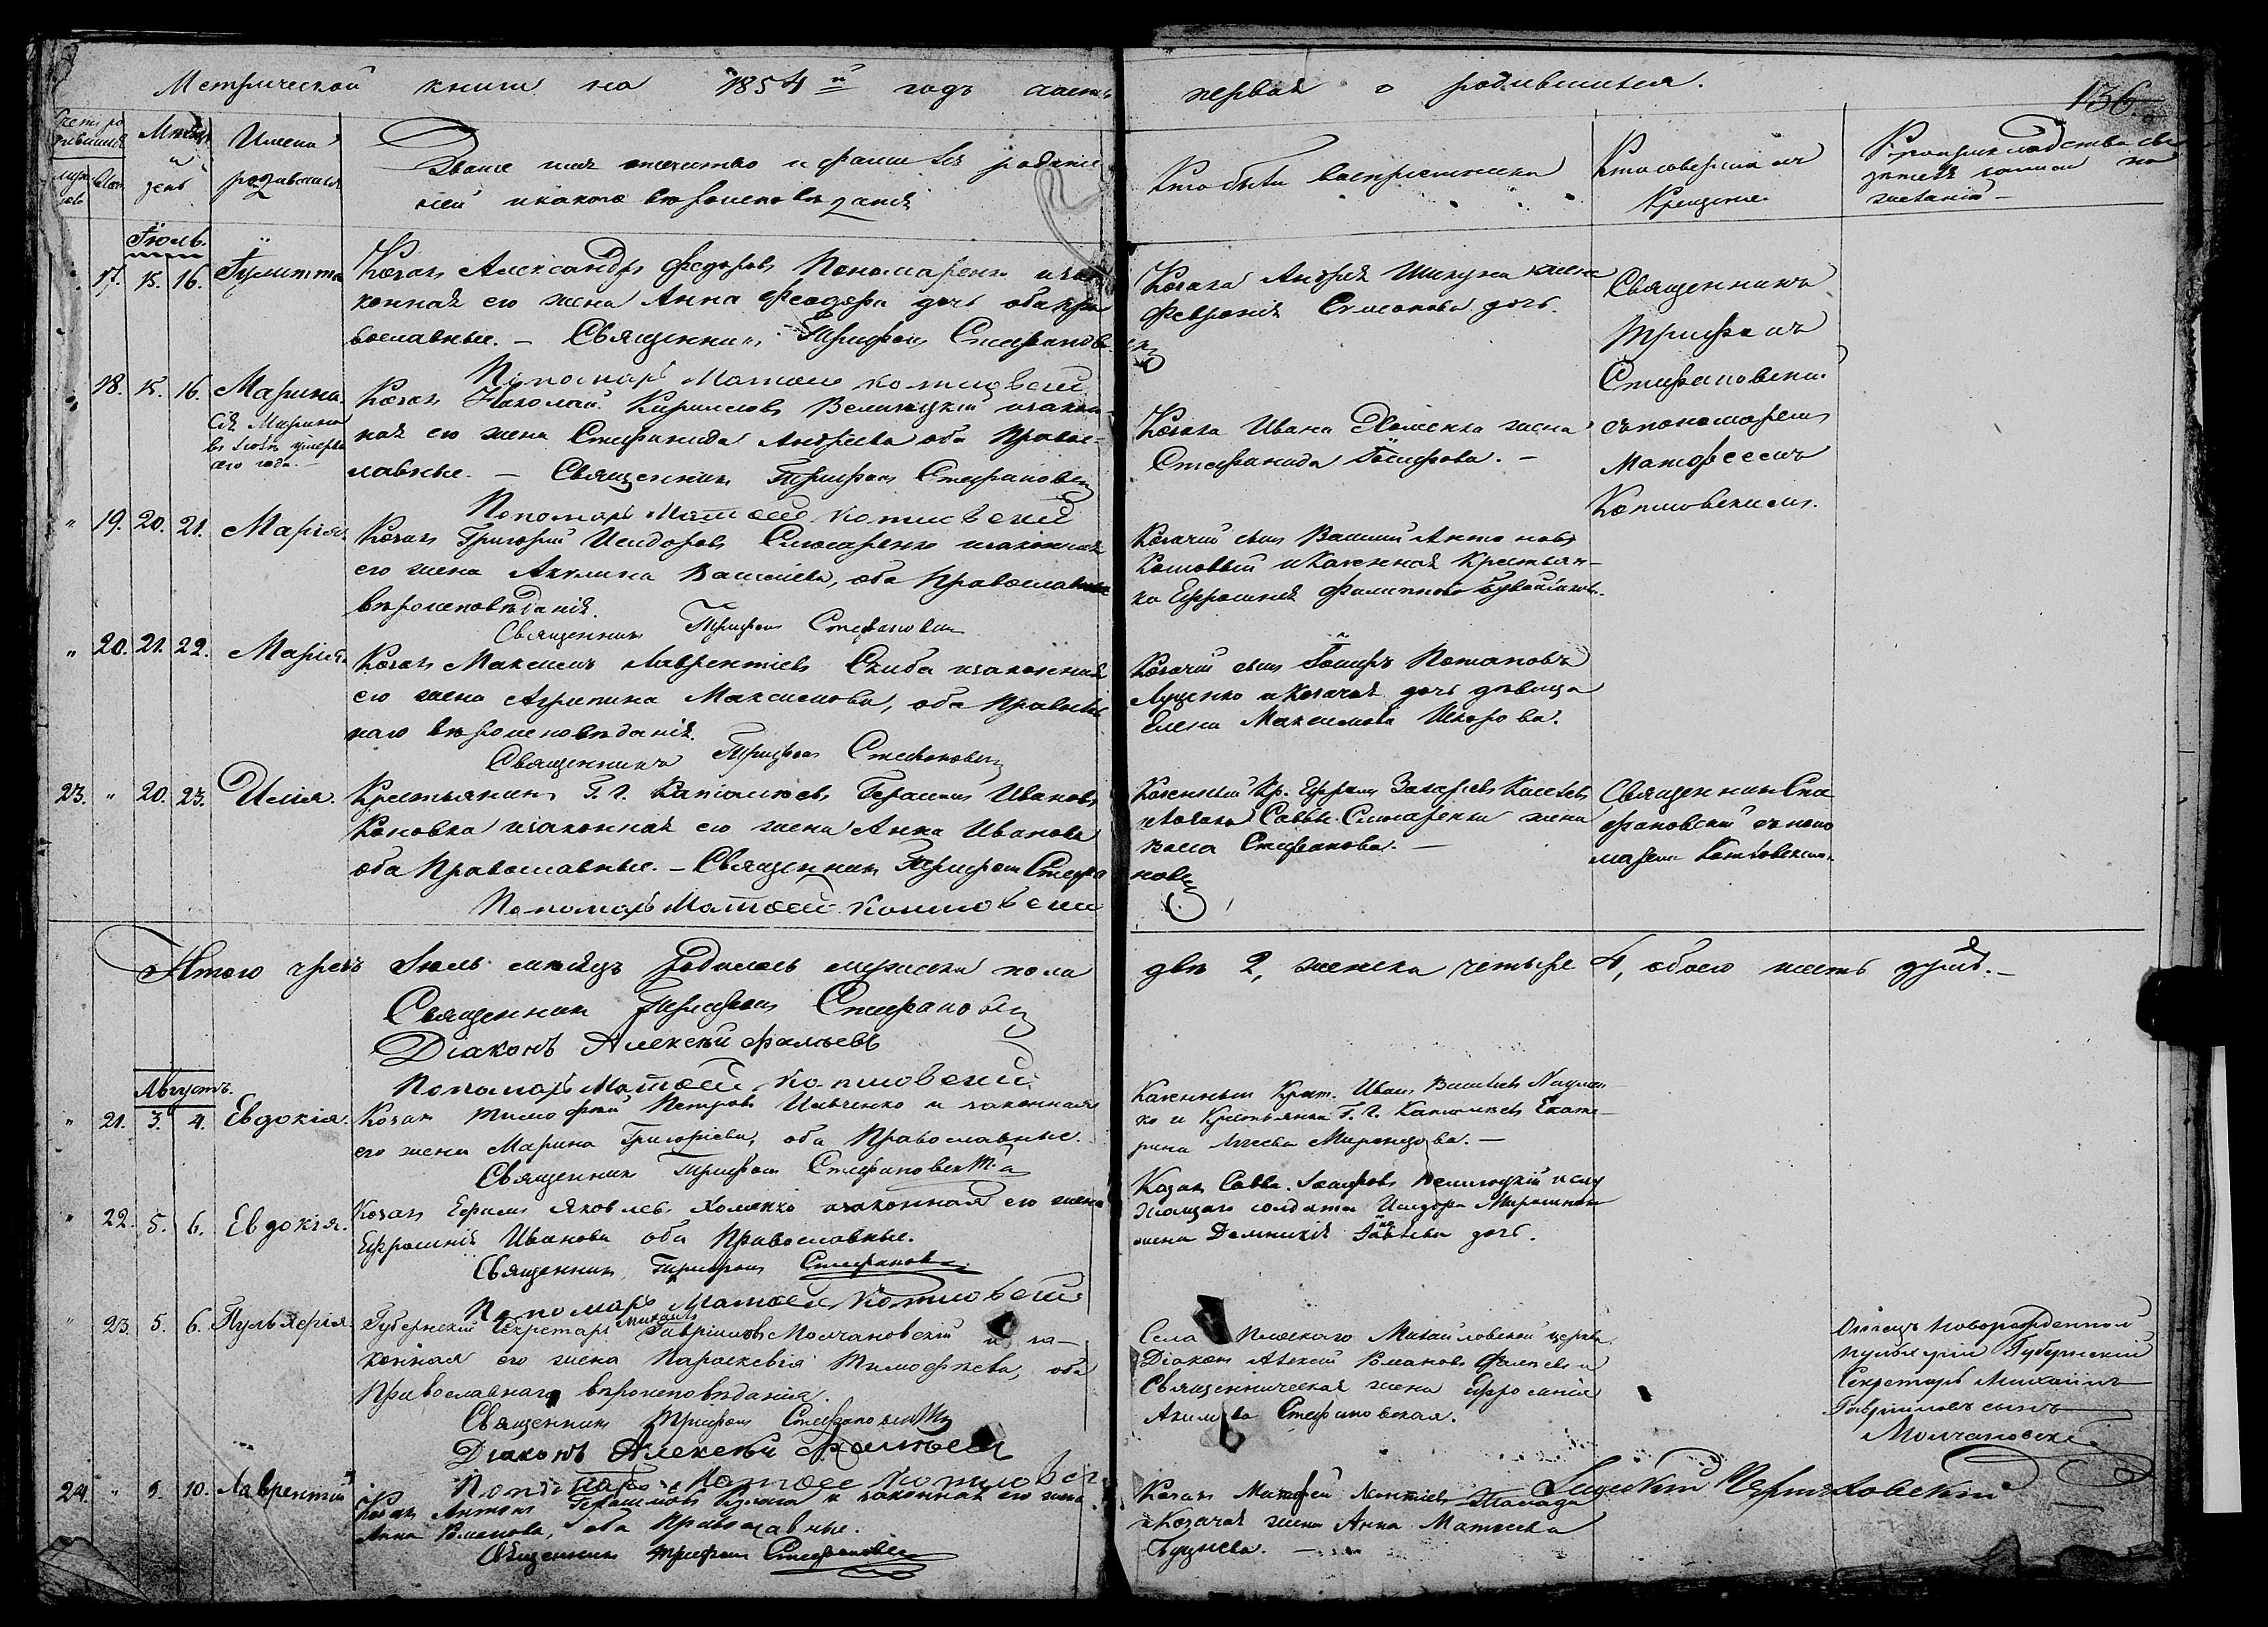 Метрической книги на 1854 й годъ часть первая о родившихся.
136.
Счетъ родившихся
Мѣсяцъ и день
Имена родившихся
Званіе имя отчество и фамилія родителей и какого вѣроисповѣданія
Кто были воспріемники
Кто совершалъ Крещеніе
Рукоприкладство свидѣтелей записи по желанію
Іюль.
17. 15. 16. Іулитта
Козакъ Александръ Федоровъ Пономаренко и законная его жена Анна Феодора дочь оба православные. – Священникъ Трифонъ Стефановскій
Пономарь Матѳей Котловскій
Козака Андрея Шикуна жена
Февронія Симонова дочь.
Священникъ
Трифонъ
Стефановскій
съ пономаремъ
Матфеемъ
Котловскимъ.
18. 15. 16. Марина.
Сія Марина
умерла
сего года. –
Козакъ Николай Кирилловъ Велицкій и законная его жена Стефанида Андреева оба православные. – Священникъ Трифонъ Стефановскій
Пономарь Матѳей Котловскій
Козака Ивана Хоменка жена
Стефанида Іосифова. –
" 19. 20. 21. Марія.
Козакъ Григорій Исидоровъ Слюсаренко и законная
его жена Акулина Василіева, оба Православнаго
вѣроисповѣданія.
Священникъ Трифонъ Стефановскій
Козачій сынъ Василій Антоновъ
Котовый и Казенная Крестьян-
ка Ефросинія Филиппова
" 20. 21. 22. Марія.
Козакъ Максимъ Лаврентіевъ Скиба и законная
его жена Агрипина Максимова, оба Православ
наго вѣроисповѣданія.
Священникъ Трифонъ Стефановскій
Козачій сынъ Іосифъ Потаповъ
Луценко и Козачая дочь дѣвица
Елена Максимова
23. " 20. 23. Илія.
Крестьянинъ Г. Г. Капнистовъ Герасимъ Ивановъ
Коновка и законная его жена Анна Иванова
оба Православные. – Священникъ Трифонъ Стефановскій
Пономарь Матѳей Котловскій
Казенный Кр. Ефремъ Захаріевъ
и Козака Саввы Слюсаренка жена
Стефанова. –
Священникъ Сте
фановскій съ поно
маремъ Котловскимъ.
Итого чрезъ Іюль мѣсяцъ родилось мужеска пола двѣ 2, женска четыре 4, обоего шесть душъ. –
Священникъ Трифонъ Стефановскій
Діаконъ Алексѣй Фалѣевъ
Пономарь Матѳей Котловскій
Августъ.
" 21. 3. 4. Евдокія.
Козакъ Тимофей Петровъ Ильченко и законная
его жена Марина Григоріева, оба Православные.
Священникъ Трифонъ Стефановскій
Казенный Крест. Иванъ Василіевъ
ко и Крестьянка Г. Г. Капнистовъ Екате-
рина
" 22. 5. 6. Евдокія.
Козакъ Ефремъ Яковлевъ Хоменко и законная его жена
Ефросинія Иванова оба Православные.
Священникъ Трифонъ Стефановскій
Пономарь Матѳей Котловскій
Козакъ Савва Іосифовъ Велицкій и слу
жащаго солдата Исидора Мирошника
жена Домникія дочь.
" 23. 5. 6. Пульхерія.
Губернскій Секретарь Михаилъ Гавріиловъ Молчановскій и за-
конная его жена Параскевія Тимофѣева, оба
Православнаго вѣроисповѣданія.
Священникъ Трифонъ Стефановскій
Діаконъ Алексѣй Фалѣевъ
Пономарь Матѳей Котловскій
Села Михайловской церкви
Діаконъ Алексій Романовъ Фалѣевъ и
Священническая жена Ефросинія
Акимова Стефановская.
Отецъ новорожденной
Пульхеріи Губернскій
Секретарь Михаилъ
Гавріиловъ сынъ
Молчановскій
24. " 9. 10. Лаврентій
Козакъ Антонъ Герасимовъ и законная его жена
Анна Романова, оба Православные.
Священникъ Трифонъ Стефановскій
Козакъ Матфей Леонтіевъ
и Козачая жена Анна Матвеева